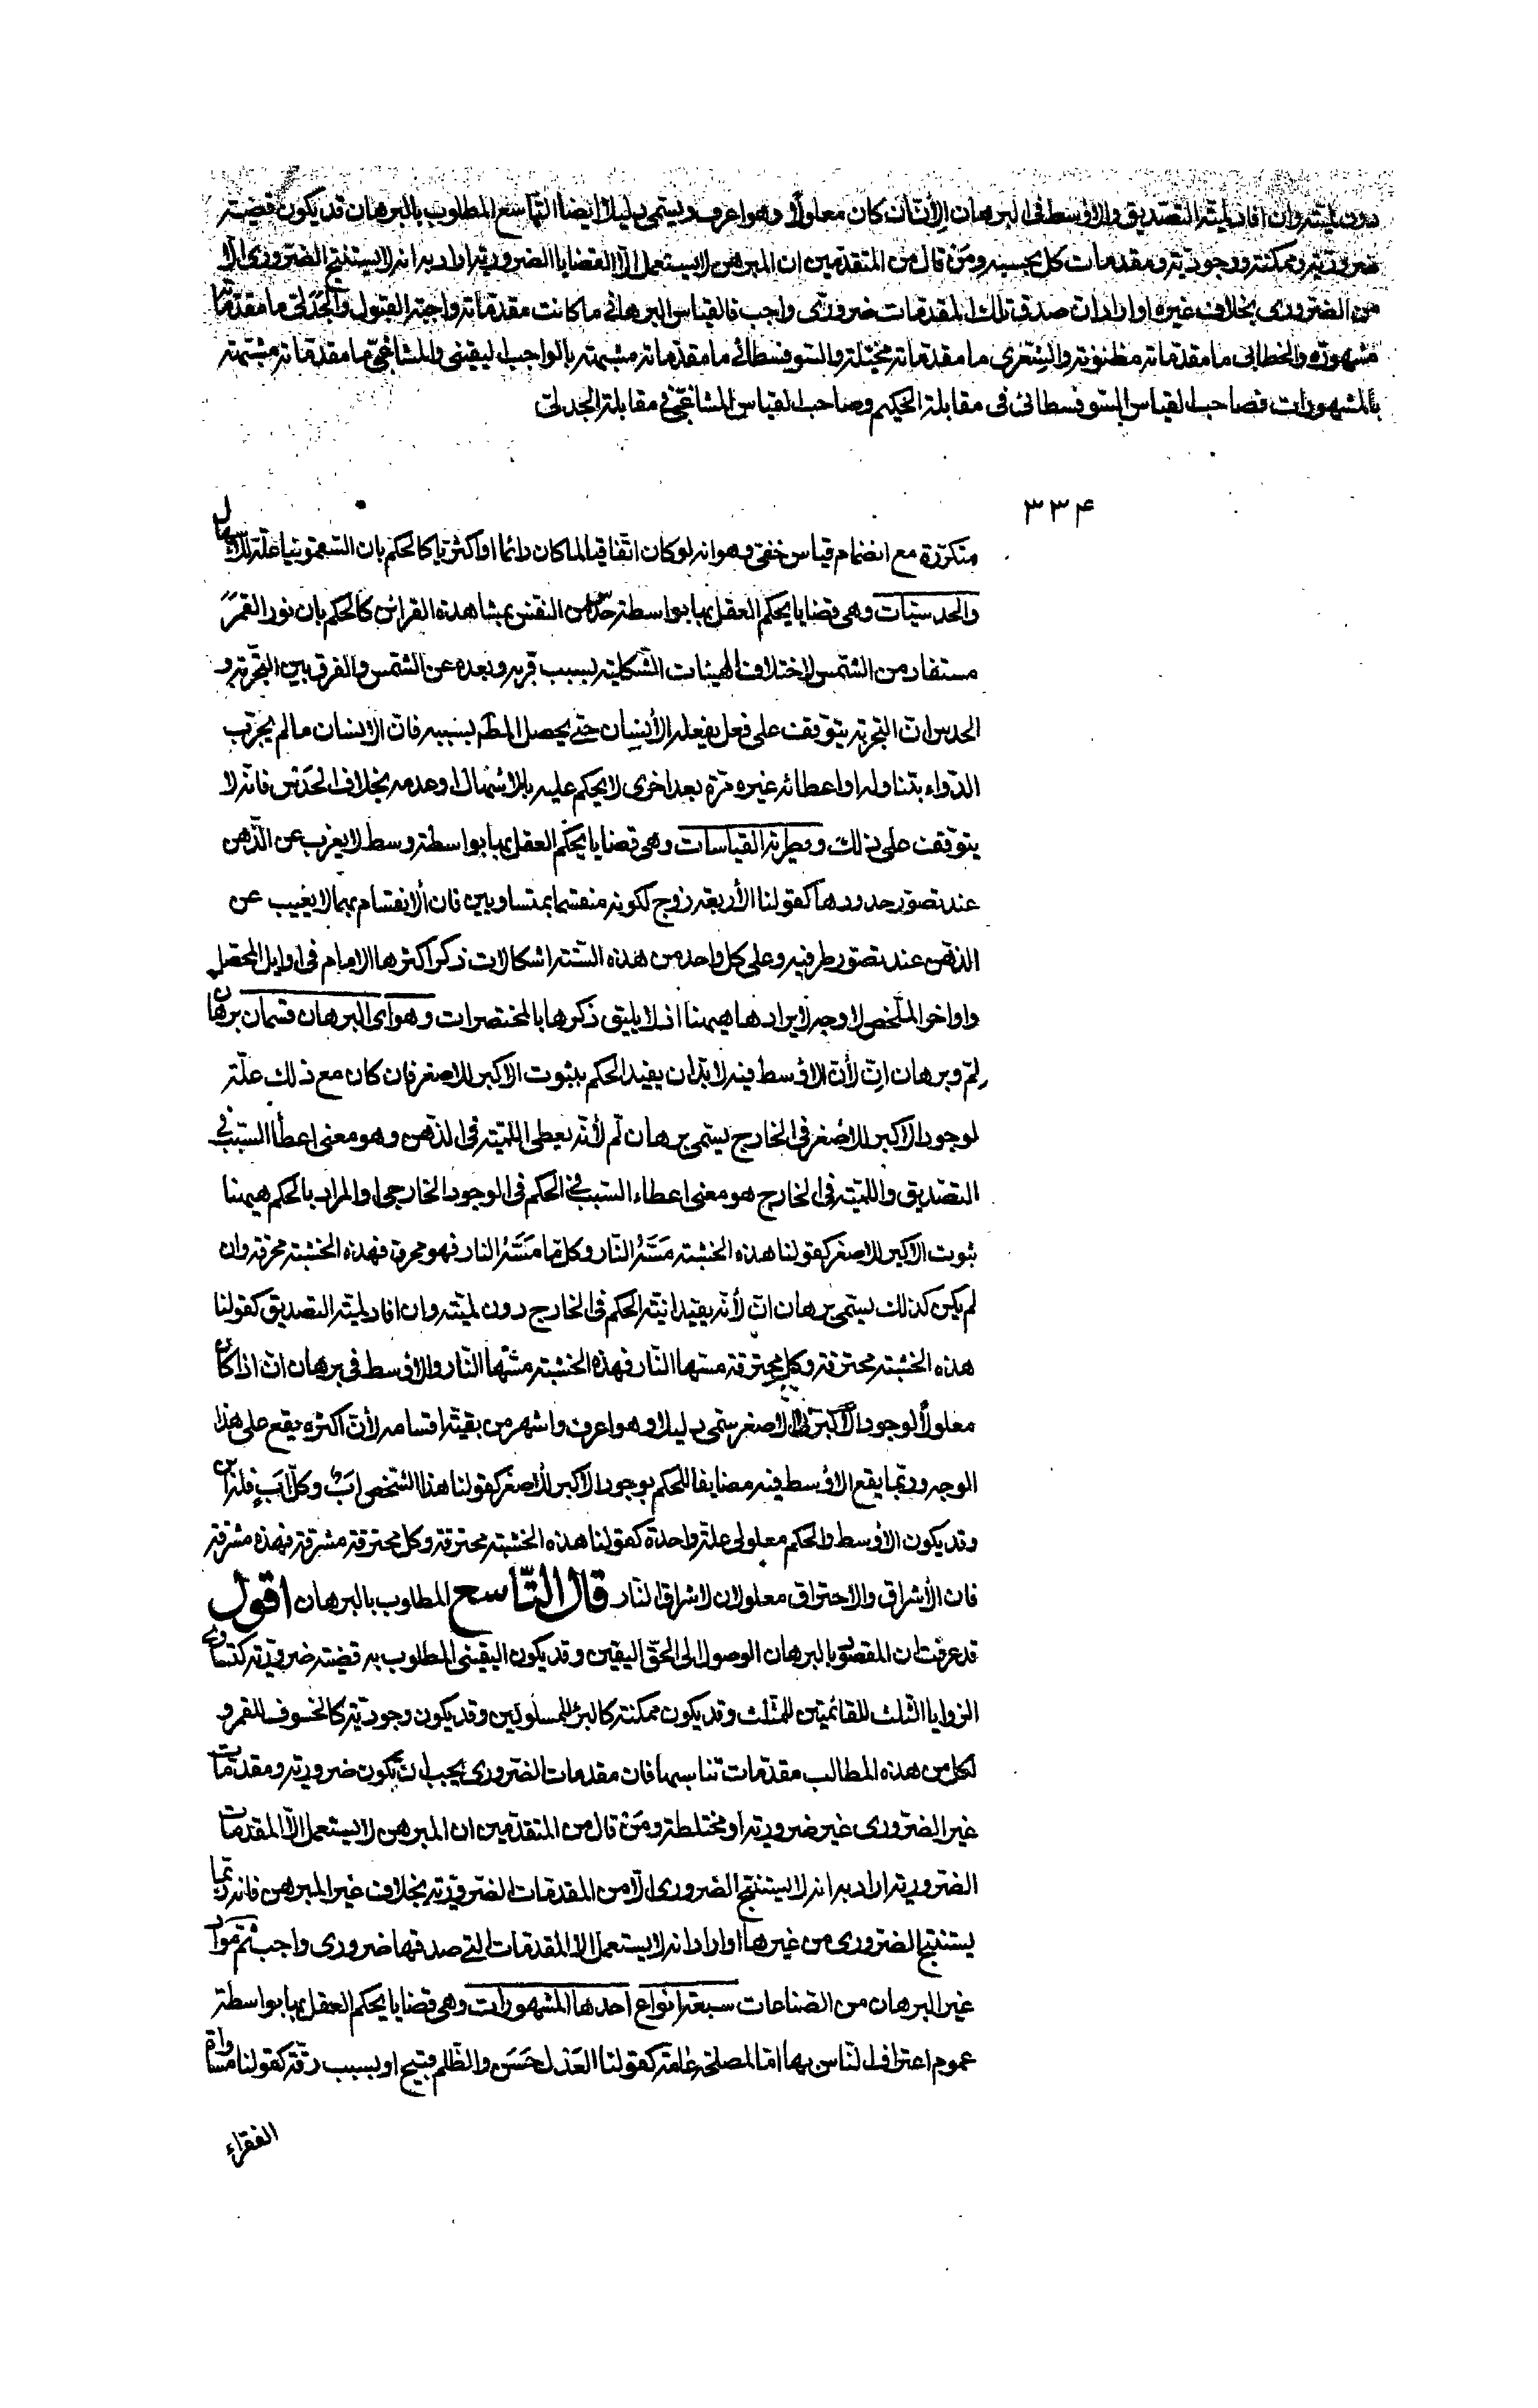 دون لميته وان افاد لمية التصديق والاوسط فى البرهان الأنّ ان كان معلولاً وهو اعرف ويسمّى دليلا ايضا التاسع المطلوب بالبرهان قد يكون قضية
ضرورية وممكنة ووجودية ومقدمات كل بحسبه ومَنْ قال من المتقدمين ان المبرهن لا يستعمل الّا القضايا الضرورية اراد به انه لا يستنتج الضرورى الّا
من الضرورى بخلاف غيره او اراد ان صدق تلك المقدمات ضرورىّ واجب فالقياس البرهانى ما كانت مقدماته واجبة القبول والجَدَلىّ ما مقدماته
مشهورة والخطابى ما مقدماته مظنونة والشِعرى ما مقدماته مخيّلة والسوفسطائى ما مقدماته مشبهة بالواجب اليقينى والمشاغبى ما مقدماته مشبهة
بالمشهورات فصاحب القياس السوفسطائى فى مقابلة الحكيم وصاحب القياس المشاغبىّ فى مقابلة الجدلىّ
٣٣۴
متكرّرة مع انضمام قياس خفىّ وهو انه لو كان اتّفاقيا لما كان دائما او اكثريا كالحكم بان السقمونيا علّة للاسهال
والحدسيّات وهى قضايا يحكم العقل بها بواسطة حدس من النفس بمشاهدة القرائن كالحكم بان نور القمر
مستفاد من الشمس لاختلاف الهيئات الشكلية بسبب قربه وبعده عن الشمس والفرق بين التجربة و
الحدس ان التجربة يتوقف على فعل يفعله الأنسان حتى يحصل المط بسببه فانّ الانسان ما لم يجرّب
الدّواء بتناوله او اعطائه غيره مرّة بعد اخرى لا يحكم عليه بالاسهال او عدمه بخلاف الحَدْس فانّه لا
يتوقف على ذلك وفطرية القياسات وهى قضايا يحكم العقل بها بواسطة وسط لا يعزب عن الذّهن
عند تصوّر حدودها كقولنا الأربعة زوج لكونه منقسما بمتساويين فان ألانقسام بهما لا يغيب عن
الذهن عند تصوّر طرفيه وعلى كل واحد من هذه السّتة اشكالات ذكر اكثرها الامام فى اوايل المحصّل
واواخر الملخّص لا وجه لايرادها هيهنا اذ لا يليق ذكرها بالمختصرات وهو اى البرهان قسمان برهان
لِمّ وبرهان اِنّ لأنّ الاوسط فيه لا بدّ ان يفيد الحكم بثبوت الاكبر للاصغر فان كان مع ذلك علّة
لوجود الاكبر للاصغر فى الخارج يسمّى برهان لم لأنّه يعطى اللميّة فى الذّهن وهو معنى اعطاء السّبب فى
التصديق واللميّة فى الخارج هو معنى اعطاء السّبب فى الحكم فى الوجود الخارجى والمراد بالحكم هيهنا
ثبوت الاكبر للاصغر كقولنا هذه الخشبة مَسَّهُ النّار وكلّ ما مَسَّهُ النار فهو محرق فهذه الخشبة محرقة وان
لم يكن كذلك يسمّى برهان انّ لأنّه يفيد انيّة الحكم فى الخارج دون لميّته وان افاد لميّة التصديق كقولنا
هذه الخشبة محترقة وكل محترقة مسّها النّار فهذه الخشبة مسّها النّار والاوسط فى برهان انّ اذا كان
معلولاً لوجود الأكبر فى الاصغر سمّى دليلا وهو اعرف واشهر من بقيّة اقسامه لأنّ اكثره يقع على هذا
الوجه وربّما يقع الاوسط فيه مضايفا للحكم بوجود الاكبر للاصغر كقولنا هذا الشّخص ابٌ وكلّ ابٍ فله ابن
وقد يكون الأوسط والحكم معلولى علّة واحدة كقولنا هذه الخشبة محترقة وكل محترقة مشرقة فهذه مشرقة
فان الأشراق والاحتراق معلولان لاشراق النّار قال التّاسع المطلوب بالبرهان اقول
قد عرفت ان المقصود بالبرهان الوصول الى الحقّ اليقين وقد يكون اليقينى المطلوب به قضيّة ضروريّة كتساوى
الزوايا الثلث للقائمتين للمثلث وقد يكون ممكنة كالبرء للمسلولين وقد يكون وجوديّة كالخسوف للقمر و
لكل من هذه المطالب مقدّمات تناسبها فان مقدمات الضرورى يجب ان تكون ضرورية ومقدمات
غير الضرورى غير ضرورية او مختلطة ومَنْ قال من المتقدّمين ان المبرهن لا يستعمل الّا المقدمات
الضرورية اراد به انه لا يستنتج الضرورى الّا من المقدمات الضروريّة بخلاف غير المبرهن فانه ربّما
يستنتج الضرورى من غيرها او اراد انه لا يستعمل الا المقدمات التى صدقها ضرورى واجب ثم موادّ
غير البرهان من الصّناعات سبعة انواع احدها المشهورات وهى قضايا يحكم العقل بها بواسطة
عموم اعتراف النّاس بها امّا لمصلحة عامّة كقولنا العَدْل حَسَن والظّلم قبيح او بسبب رقّة كقولنا مساواة
الفقراء